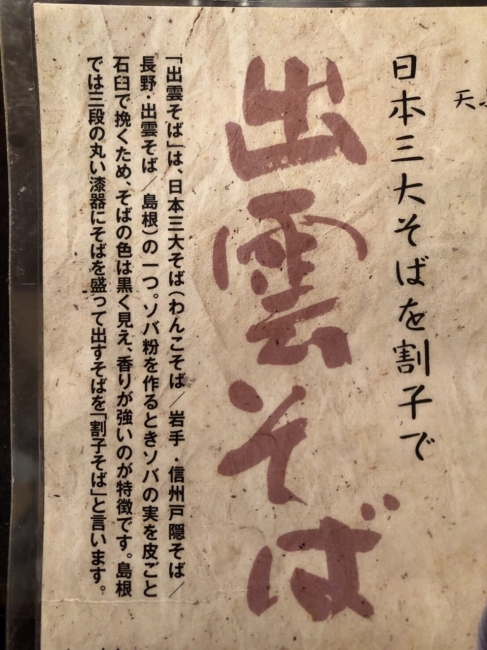 天
日本三大そばを割子で
出雲そば
「出雲そば」は、日本三大そば(わんこそば／岩手・信州戸隠そば／
長野・出雲そば／島根)の一つ。ソバ粉を作るときソバの実を皮ごと
石臼で挽くため、そばの色は黒く見え、香りが強いのが特徴です。島根
では三段の丸い漆器にそばを盛って出すそばを「割子そば」と言います。